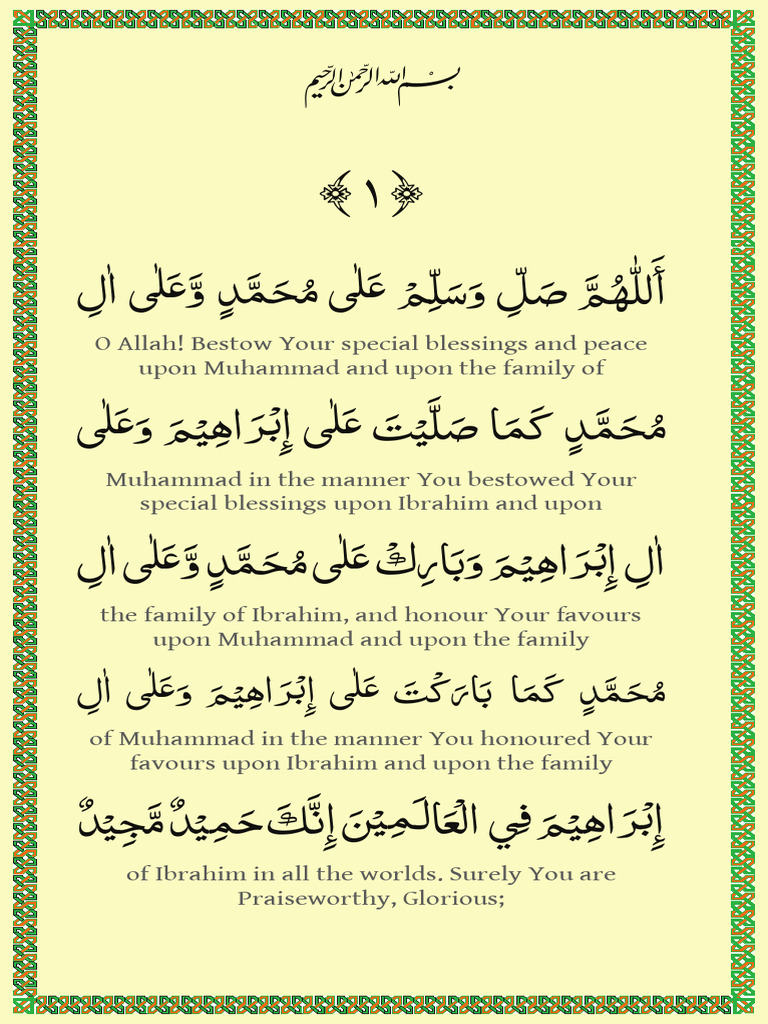 بسم الله الرحمن الرحيم
﴿١﴾
أَللّٰهُمَّ صَلِّ وَسَلِّمْ عَلٰى مُحَمَّدٍ وَّعَلٰى اٰلِ
O Allah! Bestow Your special blessings and peace
upon Muhammad and upon the family of
مُحَمَّدٍ كَمَا صَلَّيْتَ عَلٰى إِبْرَاهِيْمَ وَعَلٰى
Muhammad in the manner You bestowed Your
special blessings upon Ibrahim and upon
اٰلِ إِبْرَاهِيْمَ وَبَارِكْ عَلٰى مُحَمَّدٍ وَّعَلٰى اٰلِ
the family of Ibrahim, and honour Your favours
upon Muhammad and upon the family
مُحَمَّدٍ كَمَا بَارَكْتَ عَلٰى إِبْرَاهِيْمَ وَعَلٰى اٰلِ
of Muhammad in the manner You honoured Your
favours upon Ibrahim and upon the family
إِبْرَاهِيْمَ فِي الْعَالَمِيْنَ إِنَّكَ حَمِيْدٌ مَّجِيْدٌ
of Ibrahim in all the worlds. Surely You are
Praiseworthy, Glorious;